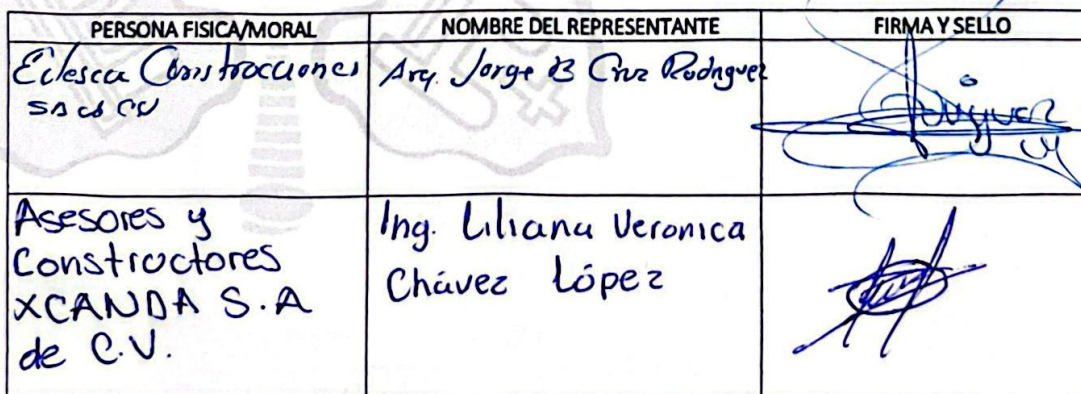 PERSONA FISICA/MORAL NOMBRE DEL REPRESENTANTE FIRMA Y SELLO
Construcciones Arq. Jorge B Cruz Rodriguez
SA de CV
Asesores y
Constructores
XCANDA S.A
de C.V.
Ing. Liliana Veronica
Chávez López